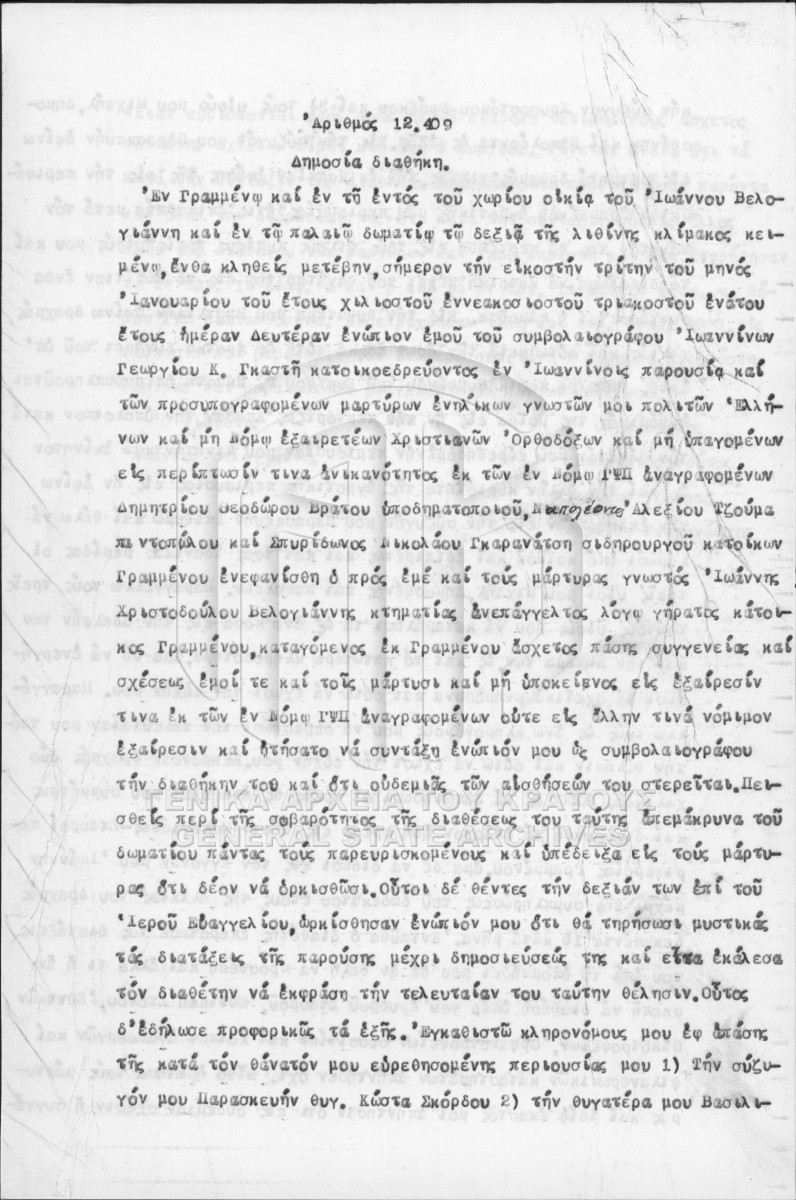 Ἀριθμός 12.409
Δημοσία διαθήκη.
Ἐν Γραμμένῳ καί ἐν τῇ ἐντός τοῦ χωρίου οἰκίᾳ τοῦ Ἰωάννου Βελο-
γιάννη καί ἐν τῷ παλαιῷ δωματίῳ τῷ δεξιᾷ τῆς λιθίνης κλίμακος κει-
μένῳ,ἔνθα κληθείς μετέβην,σήμερον τήν εἰκοστήν τρίτην τοῦ μηνός
Ἰανουαρίου τοῦ ἔτους χιλιοστοῦ ἐννεακοσιοστοῦ τριακοστοῦ ἐνάτου
ἔτους ἡμέραν Δευτέραν ἐνώπιον ἐμοῦ τοῦ συμβολαιογράφου Ἰωαννίνων
Γεωργίου Κ. Γκαστῆ κατοικοεδρεύοντος ἐν Ἰωαννίνοις παρουσίᾳ καί
τῶν προσυπογραφομένων μαρτύρων ἐνηλίκων γνωστῶν μοι πολιτῶν Ἑλλή-
νων καί μή Νόμῳ ἐξαιρετέων Χριστιανῶν Ὀρθοδόξων καί μή ὑπαγομένων
εἰς περίπτωσίν τινα ἀνικανότητος ἐκ τῶν ἐν Νόμῳ ΓΨΠ ἀναγραφομένων
Δημητρίου Θεοδώρου Βράτου ὑποδηματοποιοῦ, Ναπολέοντος Ἀλεξίου Τζούμα
παντοπώλου καί Σπυρίδωνος Νικολάου Γκαρανάτση σιδηρουργοῦ κατοίκων
Γραμμένου ἐνεφανίσθη ὁ πρός ἐμέ καί τούς μάρτυρας γνωστός Ἰωάννης
Χριστοδούλου Βελογιάννης κτηματίας ἀνεπάγγελτος λόγῳ γήρατος κάτοι-
κος Γραμμένου,καταγόμενος ἐκ Γραμμένου ἄσχετος πάσης συγγενείας καί
σχέσεως ἐμοί τε καί τοῖς μάρτυσι καί μή ὑποκείενος εἰς ἐξαίρεσίν
τινα ἐκ τῶν ἐν Νόμῳ ΓΨΠ ἀναγραφομένων οὔτε εἰς ἄλλην τινά νόμιμον
ἐξαίρεσιν καί ᾐτήσατο νά συντάξῃ ἐνώπιόν μου ὡς συμβολαιογράφου
τήν διαθήκην του καί ὅτι οὐδεμιᾶς τῶν αἰσθήσεών του στερεῖται.Πει-
ΓΕΝΙΚΑ ΑΡΧΕΙΑ ΤΟΥ ΚΡΑΤΟΥΣ
σθείς περί τῆς σοβαρότητος τῆς διαθέσεως του ταύτης ἀπεμάκρυνα τοῦ
GENERAL STATE ARCHIVES
δωματίου πάντας τούς παρευρισκομένους καί ὑπέδειξα εἰς τούς μάρτυ-
ρας ὅτι δέον νά ὁρκισθῶσι.Οὗτοι δέ θέντες τήν δεξιάν των ἐπί τοῦ
Ἱεροῦ Εὐαγγελίου,ὡρκίσθησαν ἐνώπιόν μου ὅτι θά τηρήσωσι μυστικάς
τάς διατάξεις τῆς παρούσης μέχρι δημοσιεύσεώς της καί εἶτα ἐκάλεσα
τόν διαθέτην νά ἐκφράσῃ τήν τελευταίαν του ταύτην θέλησιν.Οὗτος
δ'ἐδήλωσε προφορικῶς τά ἑξῆς.Ἐγκαθιστῶ κληρονόμους μου ἐφ ἁπάσης
τῆς κατά τόν θάνατόν μου εὑρεθησομένης περιουσίας μου 1) Τήν σύζυ-
γόν μου Παρασκευήν θυγ. Κώστα Σκόρδου 2) τήν θυγατέρα μου Βασιλι-